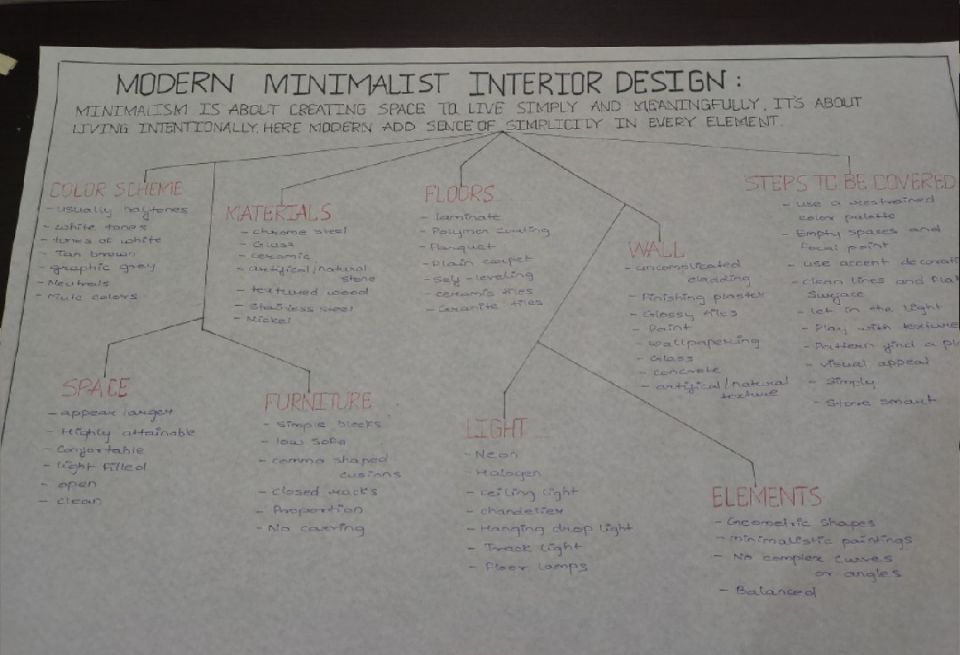 MODERN MINIMALIST INTERIOR DESIGN:
MINIMALISM IS ABOUT CREATING SPACE TO LIVE SIMPLY AND MEANINGFULLY. IT'S ABOUT
LIVING INTENTIONALLY. HERE MODERN ADD SENCE OF SIMPLICITY IN EVERY ELEMENT.
COLOR SCHEME
- usually halftones
- white tones
- tones of white
- Tan brown
- graphic grey
- Neutrals
- Mute colors
MATERIALS
- chrome steel
- Glass
- ceramic
- artifical/natural
stone
- textured wood
- Stainless steel
- Nickel
FLOORS
- laminate
- Polymer coating
- Parquet
- Plain carpet
- Self-leveling
- ceramic tiles
- Granite tiles
WALL
- uncomplicated
cladding
- Finishing plaster
- Glossy tiles
- Paint
- wallpapering
- Glass
- concrete
- artifical/natural
texture
STEPS TO BE COVERED
- use a restrained
color palette
- Empty spaces and
focal point
- use accent decorati
- clean lines and flat
Surface
- let in the light
- Play with texture
- Pattern find a pl
- visual appeal
- Simply
- Store smart
SPACE
- appear larger
- Highly attainable
- Confortable
- light filled
- open
- clean
FURNITURE
- Simple blocks
- low sofa
- comma shaped
cusions
- closed racks
- Proportion
- No covering
LIGHT
- Neon
- Halogen
- ceiling light
- chandelier
- Hanging drop light
- Track light
- Floor lamps
ELEMENTS
- Geometric shapes
- minimalistic paintings
- No complex curves
or angles
- Balanced